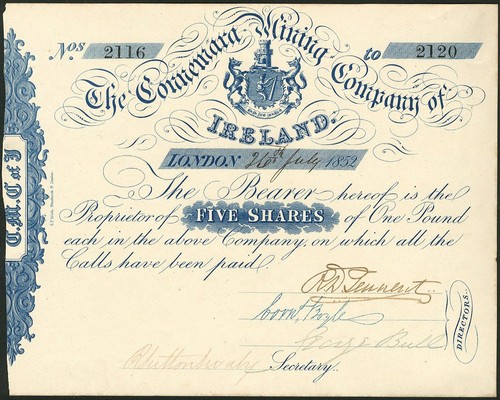 Nos 2116 to 2120
The Connemara Mining Company of
IRELAND.
LONDON 26th July 1852
The Bearer hereof is the
Proprietor of FIVE SHARES of One Pound
each in the above Company, on which all the
Calls have been paid.
R. D. Tennent
George Bull
DIRECTORS.
Secretary.
C.M.C of I